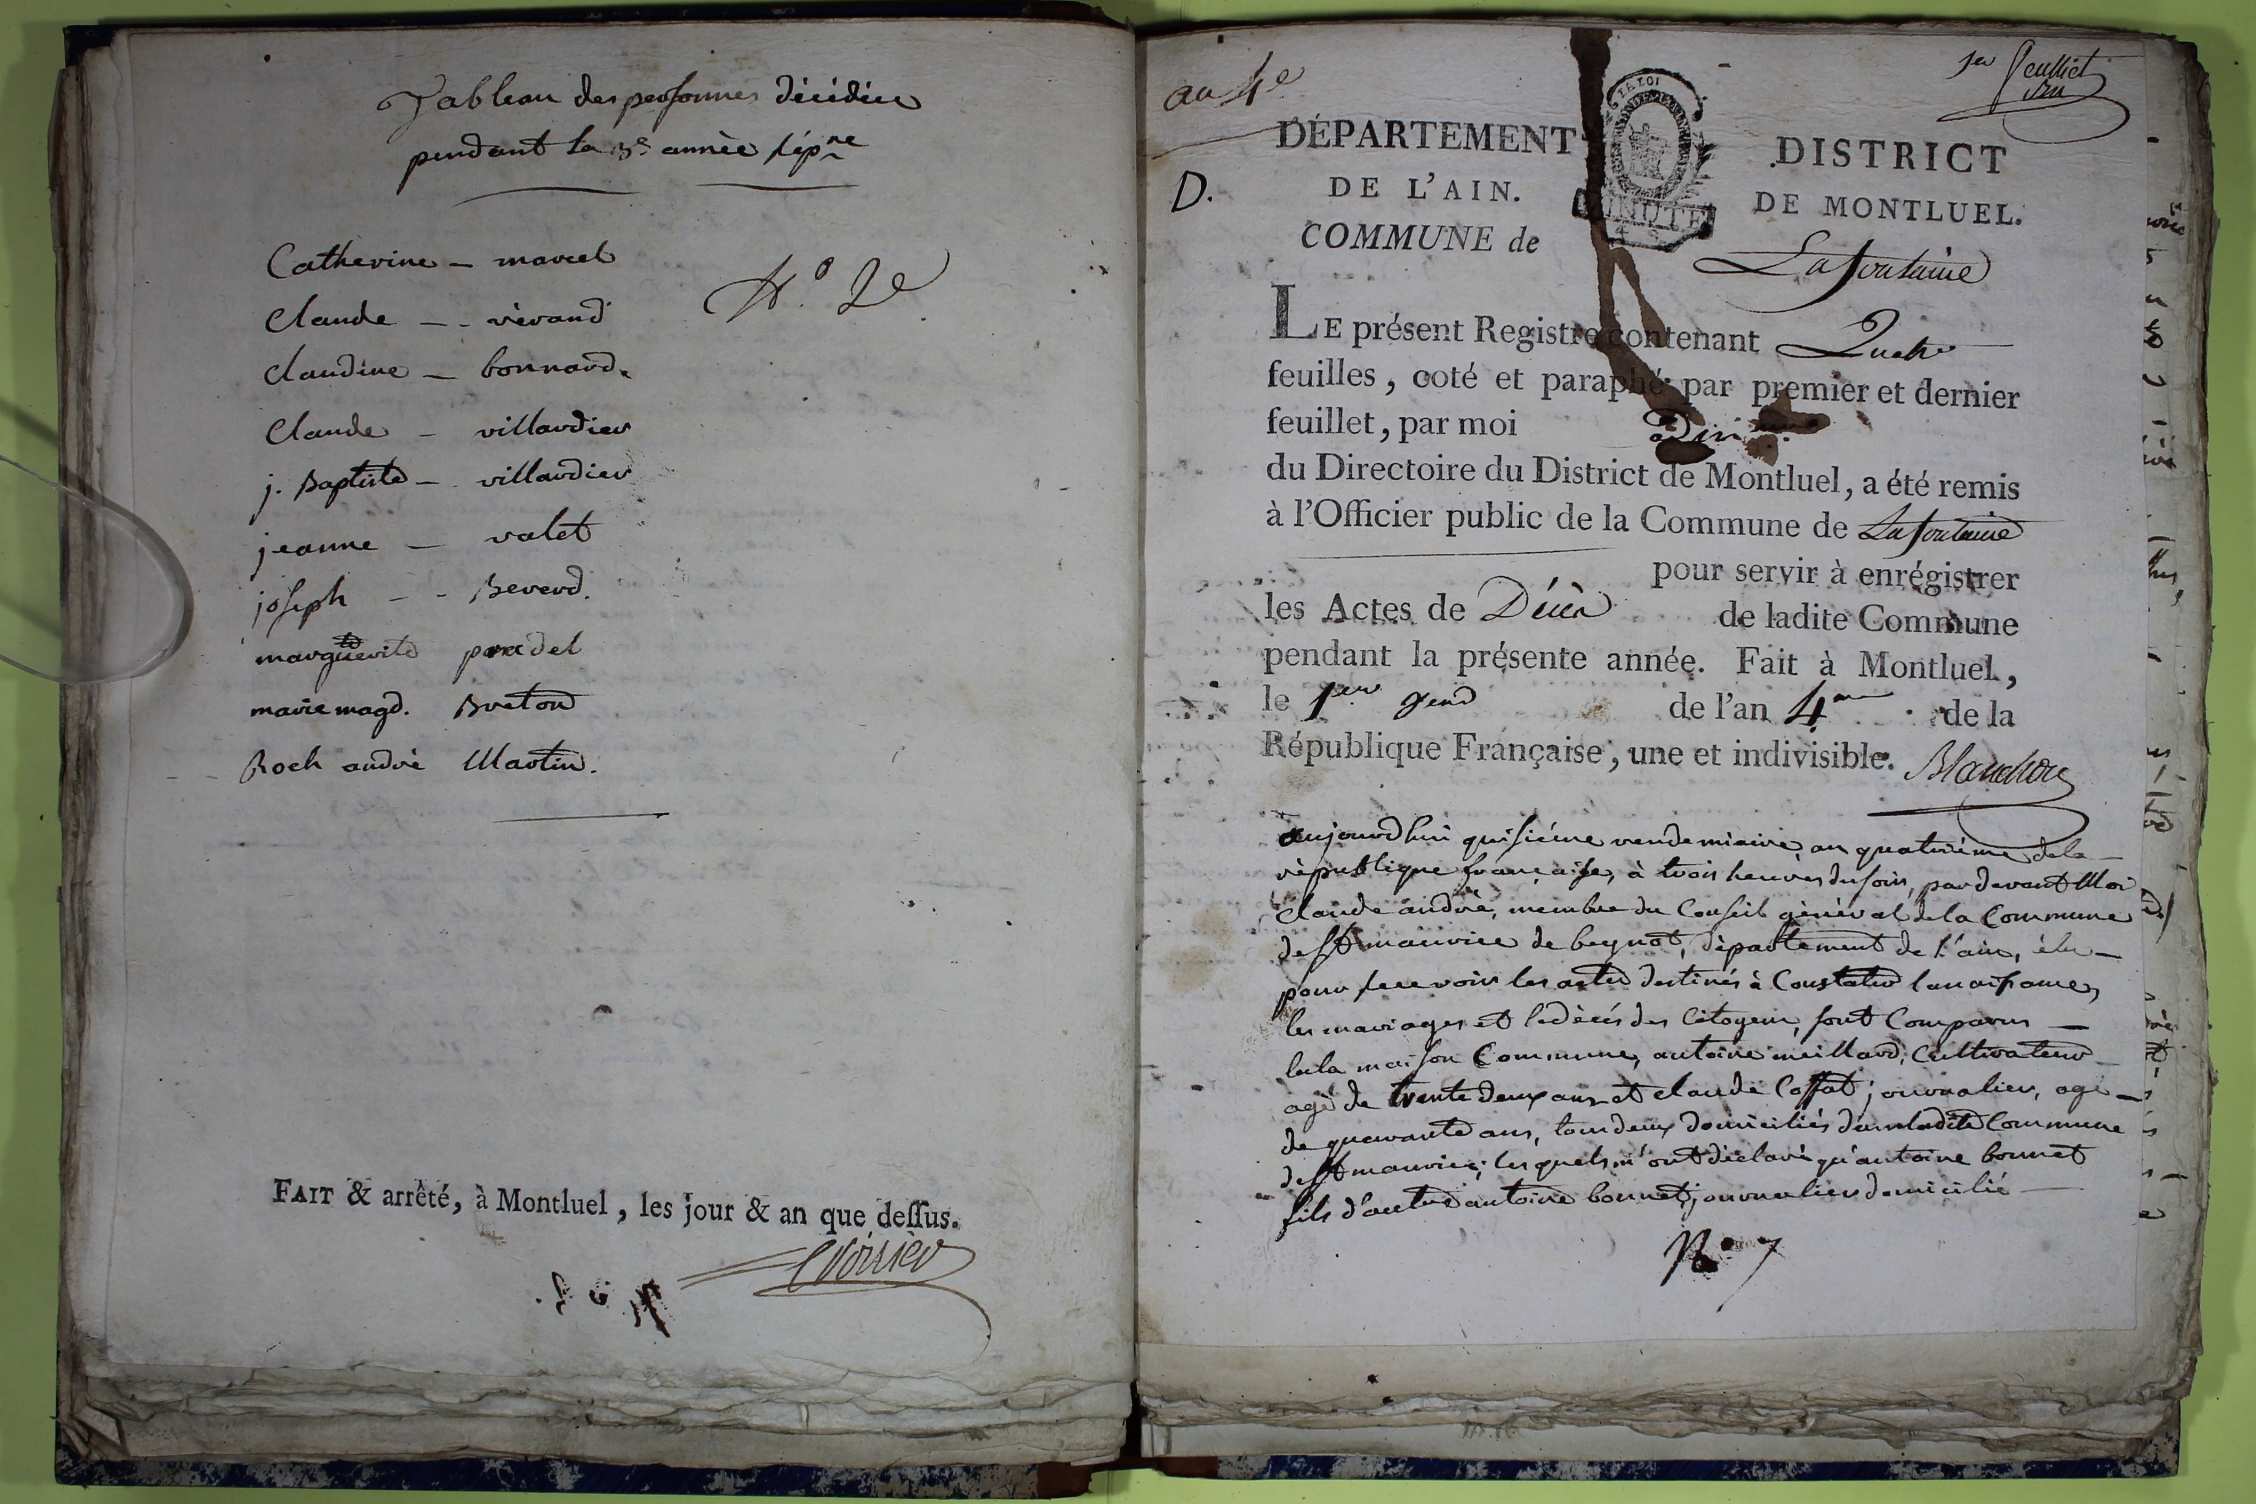 Tableau des personnes décédées
pendant la 3e année répne
Catherine - marcel
N.o 2e
Claude - - vérand
Claudine - bonnard.
Claude - villardier
j. Baptiste - villardier
jeanne - valet
joseph - - Beverd.
marguerite pradel
marie magd. Breton
Roch andré Martin.
FAIT & arrêté, à Montluel, les jour & an que dessus.
1er feuillet
an 4e
D.
DÉPARTEMENT
DE L'AIN.
COMMUNE de
LA LOI
MINUTE
DISTRICT
DE MONTLUEL.
Lafontaine
LE présent Registre contenant Quatre
feuilles, coté et paraphé par premier et dernier
feuillet, par moi
du Directoire du District de Montluel, a été remis
à l'Officier public de la Commune de Lafontaine
pour servir à enrégistrer
les Actes de Décès de ladite Commune
pendant la présente année. Fait à Montluel,
le 1er vend de l'an 4me de la
République Française, une et indivisible.
Blanchon
aujourdhui quisiéme vendemiaire, an quatriéme de la
république française, à trois heures du soir, pardevant Moi
Claude andré, membre du Conseil général de la Commune
de st maurice de beynot, département de l'ain, élu
pour recevoir les actes destinés à Constater la naissance,
les mariages et le décés des Citoyens, sont Comparus
en la maison Commune, antoine meillard, Cultivateur
agé de trente deux ans et claude Coffat journalier, agé
de quarante ans, tous deux domiciliés dans ladite Commune
de st maurice; les quels m'ont déclaré qu'antoine bonnet
fils d'autre antoine bonnet, journalier domicilié
N.o 7